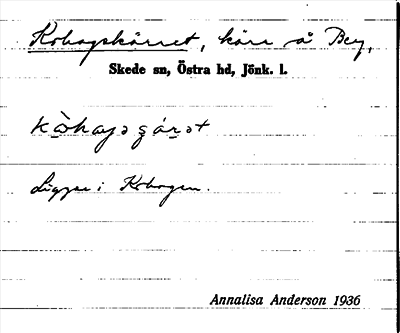 Kohagskärret, kärr å Bey,
Skede sn, Östra hd, Jönk. l.
Ligger i Kohagen.
Annalisa Anderson 1936